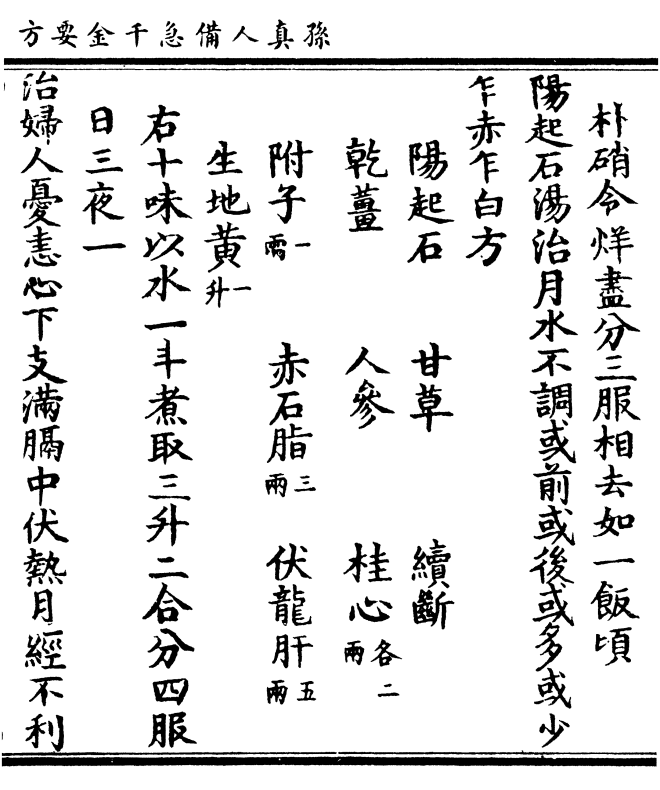 孫真人備急千金要方
朴硝令烊盡分三服相去如一飯頃
陽起石湯治月水不調或前或後或多或少
乍赤乍白方
陽起石 甘草 續斷
乾薑 人參 桂心各二兩
附子一兩 赤石脂三兩 伏龍肝五兩
生地黃一升
右十味以水一斗煮取三升二合分四服
日三夜一
治婦人憂恚心下支滿膈中伏熱月經不利